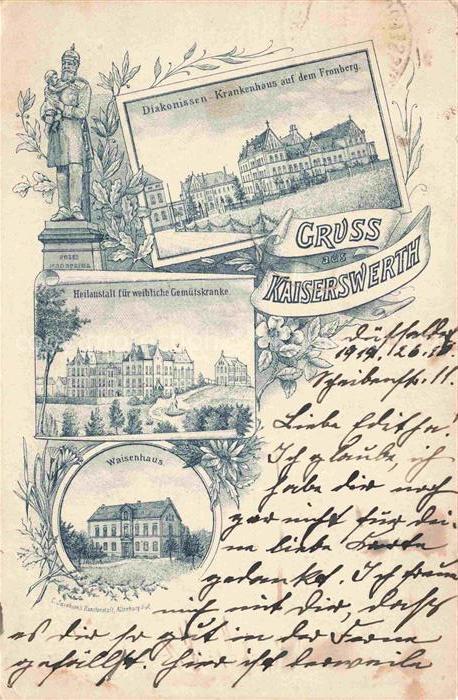 Diakonissen-Krankenhaus auf dem Fronberg.
GRUSS
aus
KAISERSWERTH
Heilanstalt für weibliche Gemütskranke.
Waisenhaus.
Düsseldorf
26.
11.
Liebe Editha!
Ich glaube, ich
habe dir noch
gar nicht für dei-
ne liebe Karte
gedankt. Ich freue
mich mit dir, dass
es dir so gut in der Ferne
gefällt. Hier ist derweile